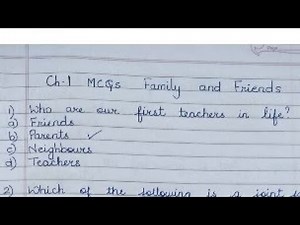 Ch-1 MCQs Family and Friends
1) Who are our first teachers in life?
a) Friends
b) Parents ✓
c) Neighbours
d) Teachers
2) Which of the following is a joint